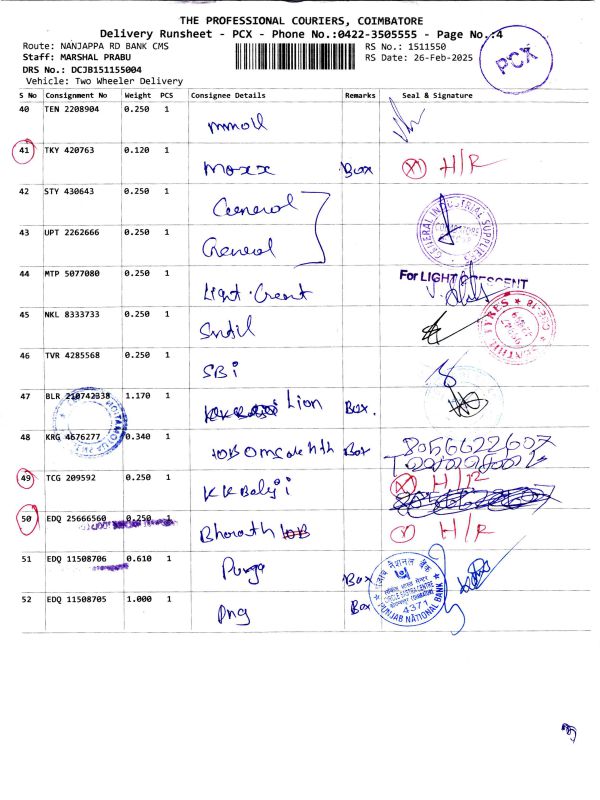 THE PROFESSIONAL COURIERS, COIMBATORE
Delivery Runsheet - PCX - Phone No.:0422-3505555 - Page No.:4
Route: NANJAPPA RD BANK CMS
RS No.: 1511550
Staff: MARSHAL PRABU
RS Date: 26-Feb-2025
DRS No.: DCJB151155004
Vehicle: Two Wheeler Delivery
PCX
S No Consignment No Weight PCS Consignee Details Remarks Seal & Signature
40 TEN 2208904 0.250 1
41 TKY 420763 0.120 1 Box H/R
42 STY 430643 0.250 1 General
GENERAL INDUSTRIAL SUPPLIES
43 UPT 2262666 0.250 1 General
44 MTP 5077080 0.250 1 Light
For LIGHT CRESCENT
45 NKL 8333733 0.250 1
46 TVR 4285568 0.250 1 SBi
47 BLR 210742338 1.170 1 Lion Box.
48 KRG 4676277 0.340 1 Box 8056622607
49 TCG 209592 0.250 1 KK Balaji H/R
50 EDQ 25666560 0.250 1 Bharath H/R
51 EDQ 11508706 0.610 1 Box
52 EDQ 11508705 1.000 1 Png Box
पंजाब नैशनल बैंक
4371
PUNJAB NATIONAL BANK